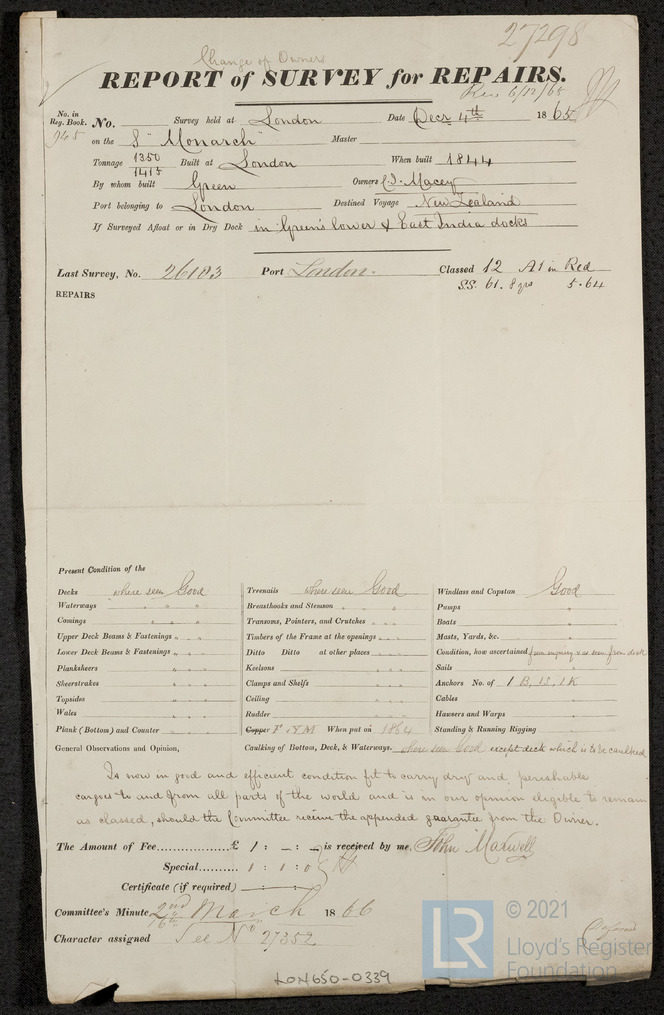 27298
Change of Owners
REPORT of SURVEY for REPAIRS.
Rec 6/12/65
No. in Reg. Book. 945 No. Survey held at London Date Decr 4th 1865
on the S "Monarch" Master
Tonnage 1350 1415 Built at London When built 1844
By whom built Green Owners C. J. Macey
Port belonging to London Destined Voyage New Zealand
If Surveyed Afloat or in Dry Dock in Green's lower & East India docks
Last Survey, No. 26103 Port London. Classed 12 A1 in Red
S.S. 61. 8 yrs 5.64
REPAIRS
Present Condition of the
Decks where seen Good
Waterways " " "
Comings " " "
Upper Deck Beams & Fastenings " " "
Lower Deck Beams & Fastenings " " "
Planksheers " " "
Sheerstrakes " " "
Topsides " " "
Wales " " "
Plank (Bottom) and Counter " " "
Treenails where seen Good
Breasthooks and Stemson " " "
Transoms, Pointers, and Crutches " " "
Timbers of the Frame at the openings " " "
Ditto Ditto at other places " " "
Keelsons " " "
Clamps and Shelfs " " "
Ceiling " " "
Rudder " " "
Copper Y M When put on 1864
Windlass and Capstan Good
Pumps "
Boats "
Masts, Yards, &c. "
Condition, how ascertained from inquiry & as seen from deck
Sails "
Anchors No. of 1 B, 1S, 1K
Cables "
Hawsers and Warps "
Standing & Running Rigging "
General Observations and Opinion, Caulking of Bottom, Deck, & Waterways. where seen Good except deck which is to be caulked
Is now in good and efficient condition fit to carry dry and perishable
cargoes to and from all parts of the world and is in our opinion eligible to remain
as classed, should the Committee receive the appended guarantee from the Owner.
The Amount of Fee.............. £ 1 : - : - is received by me, John Maxwell
Special.......... 1 : 1 : 0
Certificate (if required)
Committee's Minute 2nd March 1866
16th
Character assigned See No 27352
LON650-0339
LR © 2021
Lloyd's Register
Foundation